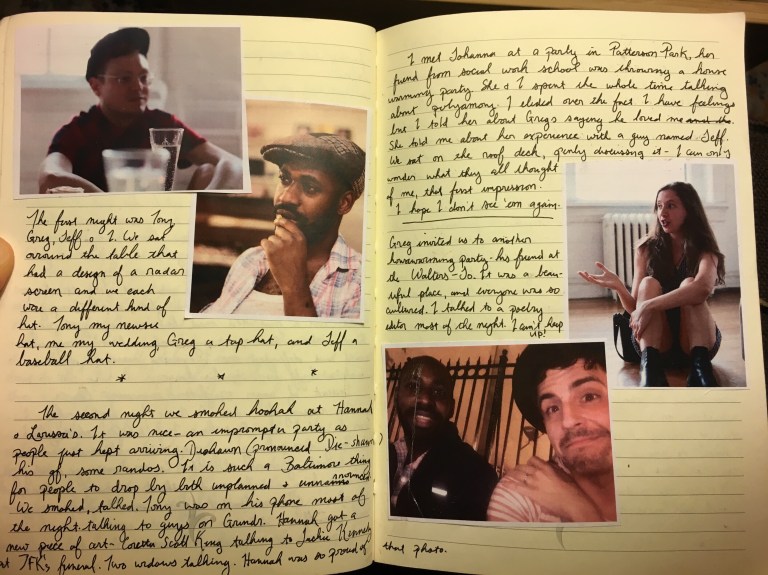 The first night was Tony,
Greg, Jeff & I. We sat
around the table that
had a design of a radar
screen and we each
wore a different kind of
hat. Tony my newsie
hat, me my wedding, Greg a top hat, and Jeff a
baseball hat.
* * *
The second night we smoked hookah at Hannah
& Larussa's. It was nice - an impromptu party as
people just kept arriving. Dishawn (pronounced Die-shawn)
his gf, some randos. It is such a Baltimore thing
for people to drop by both unplanned & unannounced
We smoked, talked. Tony was on his phone most of
the night talking to guys on Grindr. Hannah got a
new piece of art - Coretta Scott King talking to Jackie Kennedy
at JFK's funeral. Two widows talking. Hannah was so proud of
that photo.
I met Johanna at a party in Patterson Park, her
friend from social work school was throwing a house
warming party. She & I spent the whole time talking
about polyamony. I elided over the fact I have feelings
but I told her about Gregs saying he loved me and the.
She told me about her experience with a guy named Jeff.
We sat on the roof deck, openly discussing it - I can only
wonder what they all thought
of me, that first impression.
I hope I don't see 'em again.
Greg invited us to another
housewarming party - his friend at
the Walters - Jo. It was a beau-
tiful place, and everyone was so
cultured. I talked to a poetry
editor most of the night. I can't keep
up!